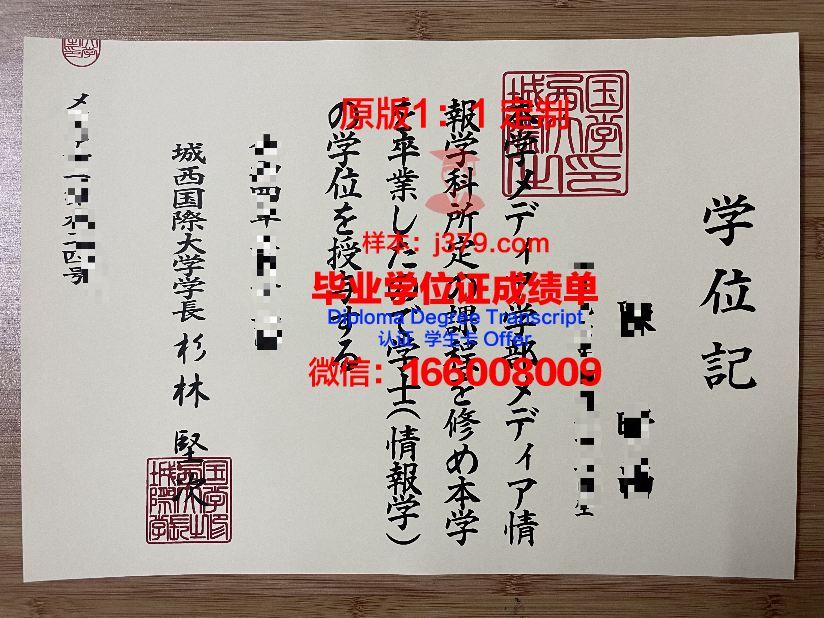 学位記
本学メディア学部メディア情
報学科所定の課程を修め本学
を卒業したので学士(情報学)
の学位を授与する
城西国際大学学長 杉林 堅次
原版1：1 定制
样本：j379.com
毕业学位证成绩单
Diploma Degree Transcript
认证 学生卡 Offer
微信：166008009